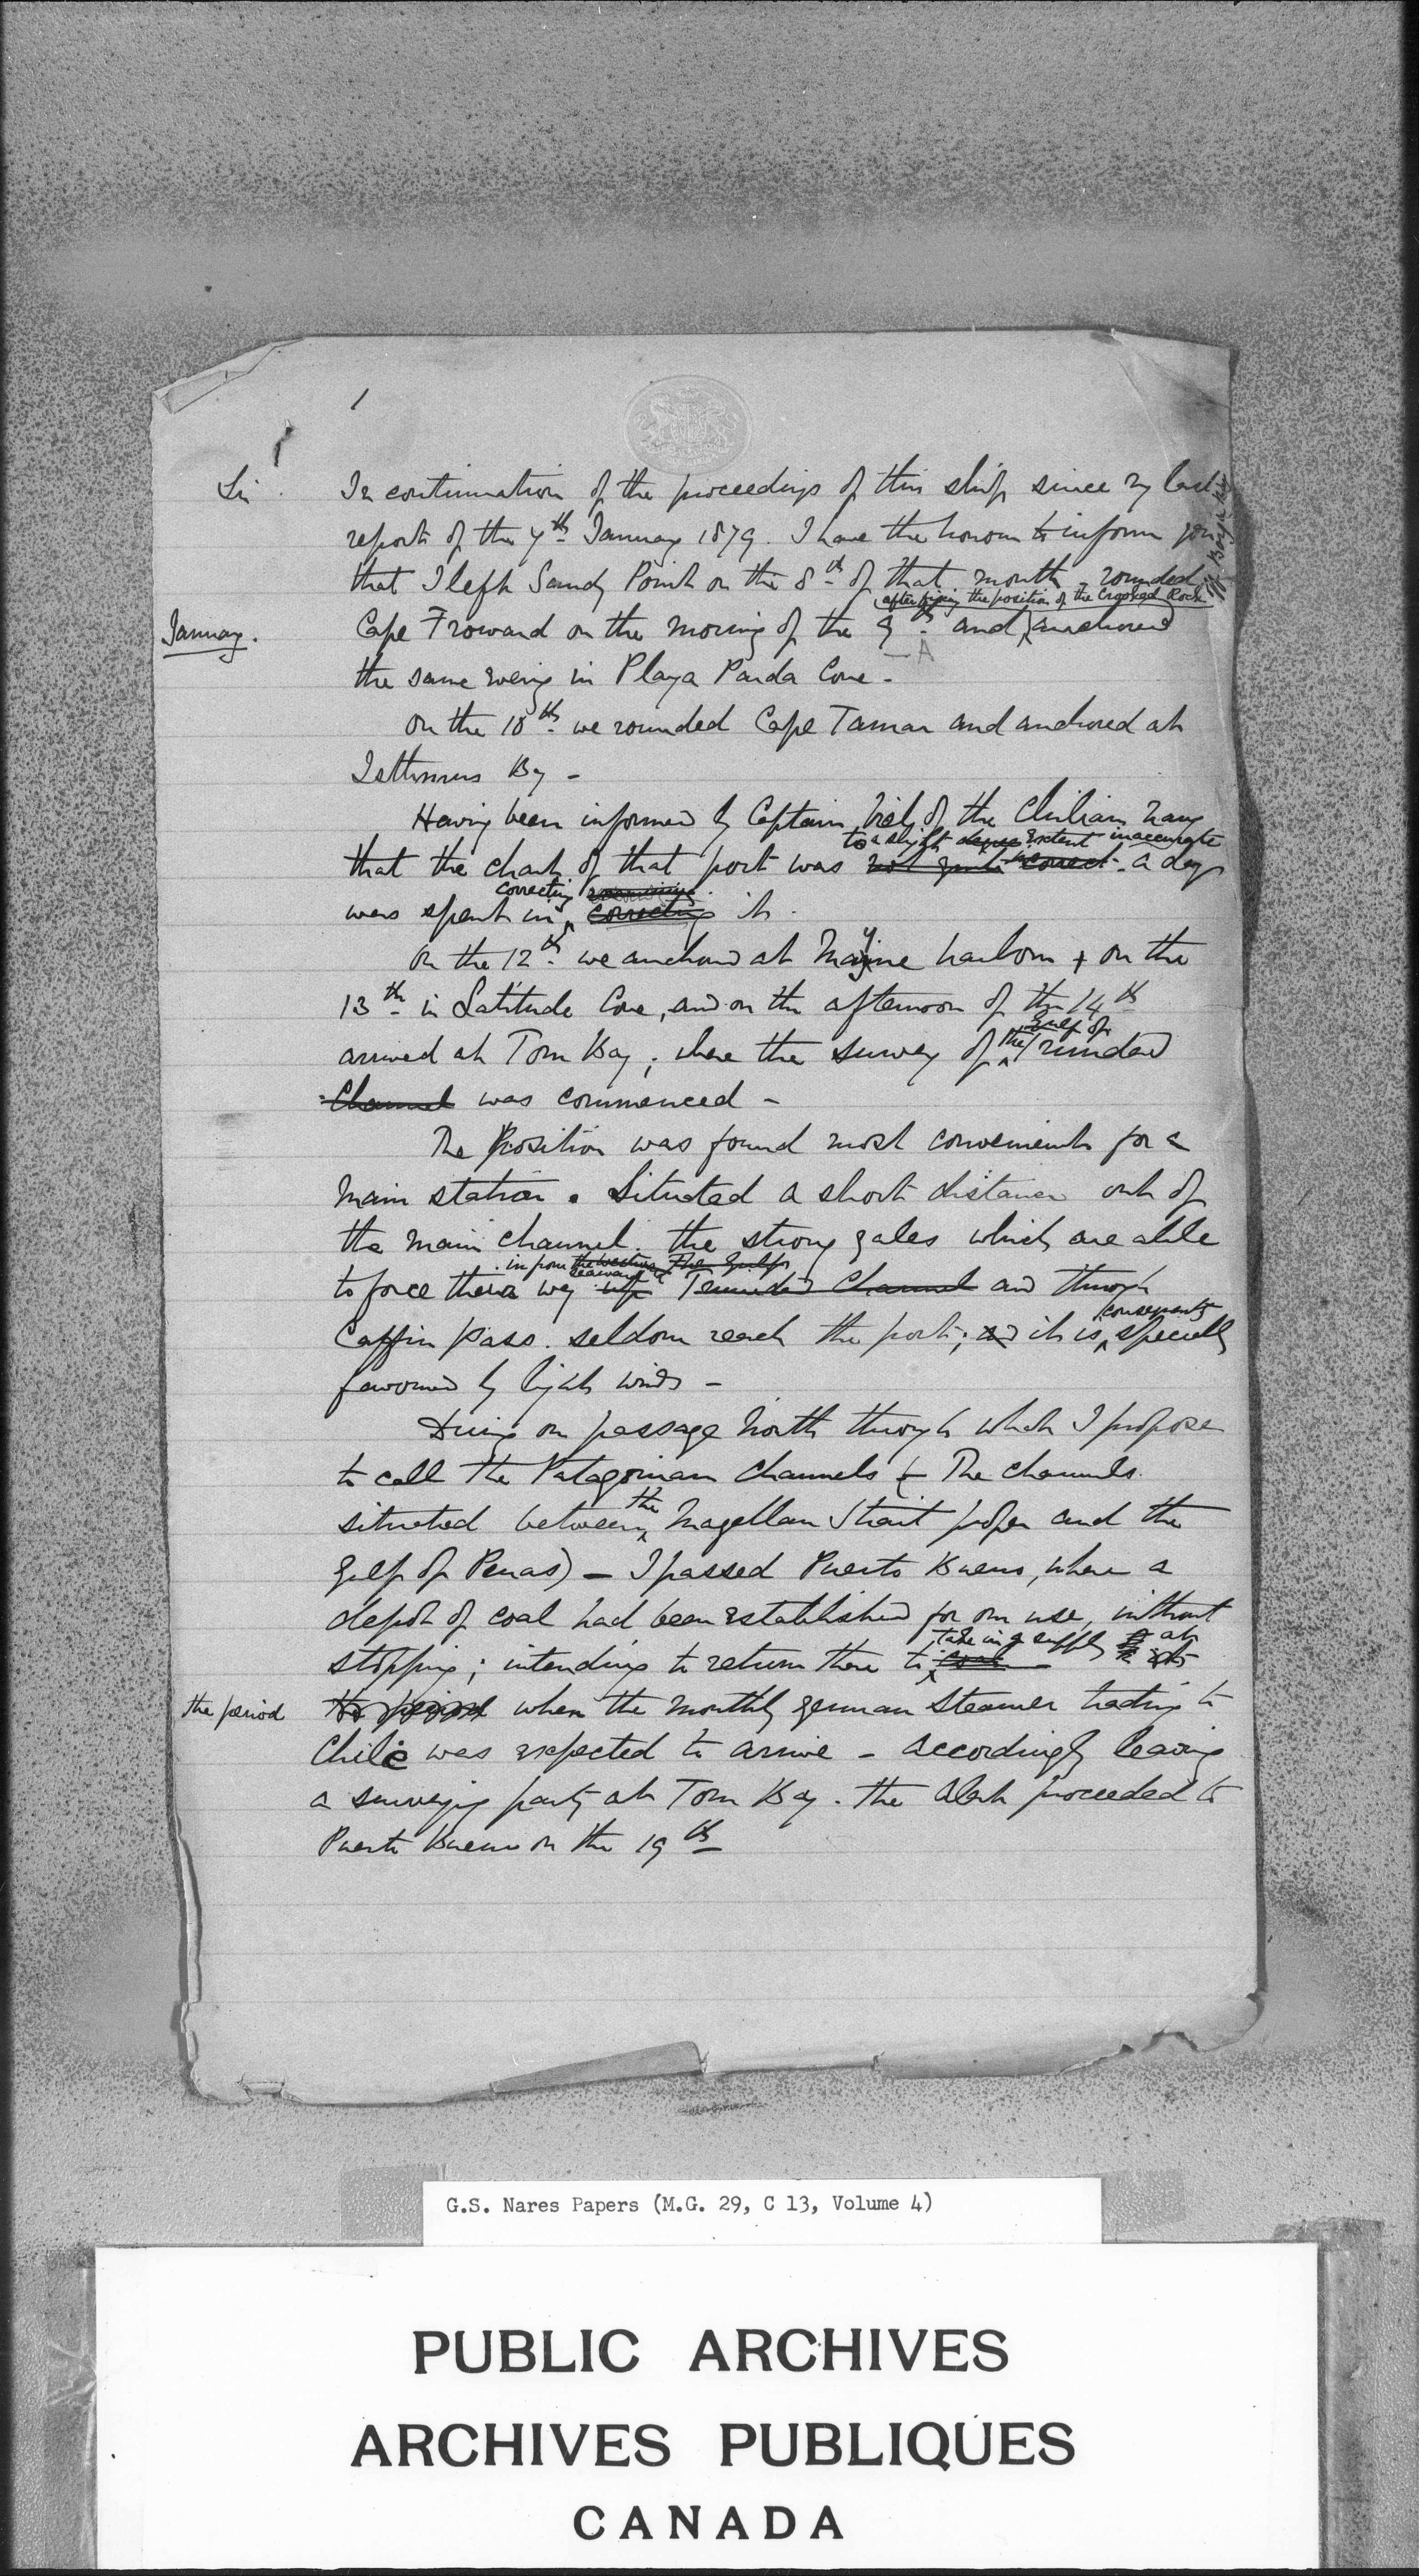 1
Sir. In continuation of the proceedings of this ship since my last
report of the 7th January 1879. I have the honour to inform you
that I left Sandy Point on the 8th of that month, rounded
after fixing the position of the Crooked Rock
January. Cape Froward on the morning of the 9th and anchored
A
the same evening in Playa Parda Cove -
On the 10th we rounded Cape Tamar and anchored at
Isthmus Bay -
Having been informed by Captain Viel of the Chilian navy
to a slight degree extent inaccurate
that the chart of that port was not quite correct - a day
correcting
was spent in correcting it.
On the 12th we anchored at Mayne harbour + on the
13th in Latitude Cove, and on the afternoon of the 14th
Gulf of
arrived at Tom Bay; where the survey of the Trinidad
Channel was commenced -
The Position was found most convenient for a
main station. Situated a short distance out of
the main channel. the strong gales which are able
in from the westward The Gulf
seaward
to force their way up Trinidad Channel and through
consequently
Caffin Pass. seldom reach the port; and it is specially
favoured by light winds -
During our passage North through which I propose
to call the Patagonian Channels (- The channels
the
situated between Magellan Strait proper and the
Gulf of Penas) - I passed Puerto Bueno, where a
depot of coal had been established for our use, without
take in a supply at
stopping; intending to return there to coal
the period the period when the monthly german steamer trading to
Chile was expected to arrive - accordingly leaving
a surveying party at Tom Bay. the Alert proceeded to
Puerto Bueno on the 19th
G.S. Nares Papers (M.G. 29, C 13, Volume 4)
PUBLIC ARCHIVES
ARCHIVES PUBLIQUES
CANADA